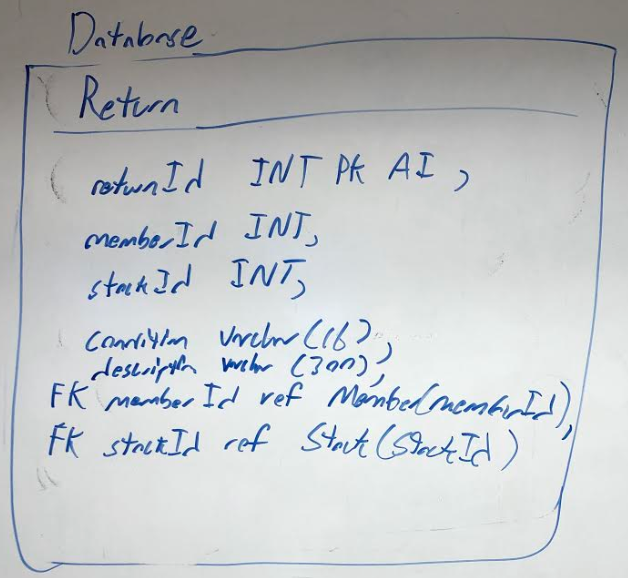 Database
Return
returnId INT PK AI,
memberId INT,
stockId INT,
condition Varchar(16),
description varchar (300),
FK memberId ref Member(memberId),
FK stockId ref Stock(StockId)